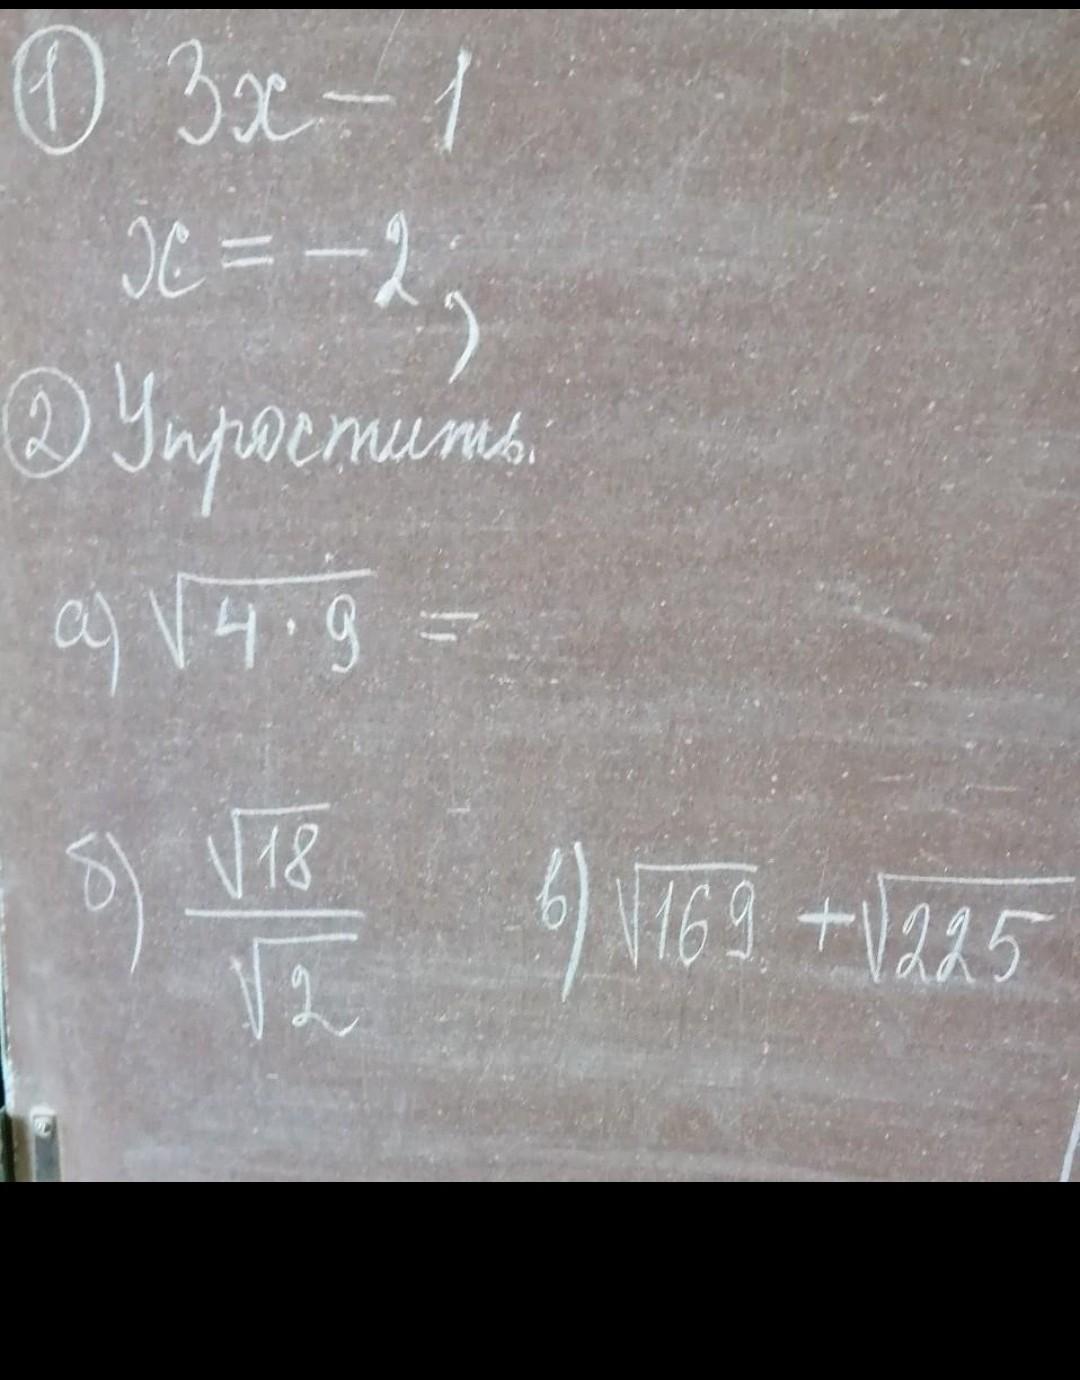 ① 3x - 1
x = -2,
② Упростить.
а) √(4 · 9) =
б) √18 / √2 в) √169 + √225